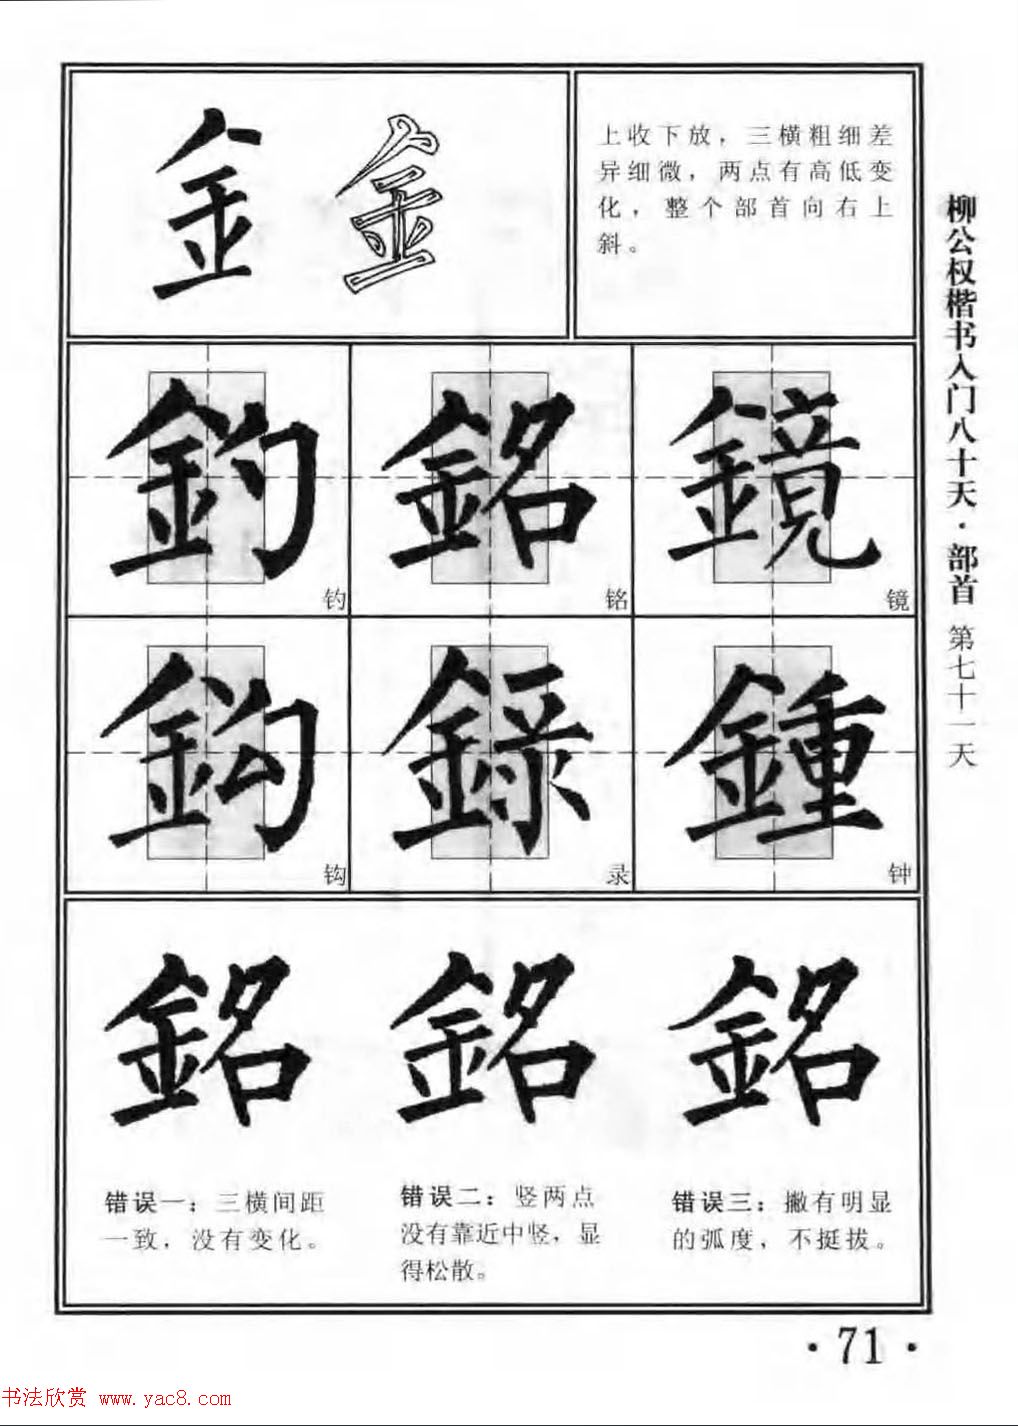 金 金
上收下放，三横粗细差
异细微，两点有高低变
化，整个部首向右上
斜。
釣 銘 鏡
钓 铭 镜
鈎 錄 鍾
钩 录 钟
銘 銘 銘
错误一：三横间距
一致，没有变化。
错误二：竖两点
没有靠近中竖，显
得松散。
错误三：撇有明显
的弧度，不挺拔。
柳公权楷书入门八十天·部首 第七十一天
·71·
书法欣赏 www.yac8.com